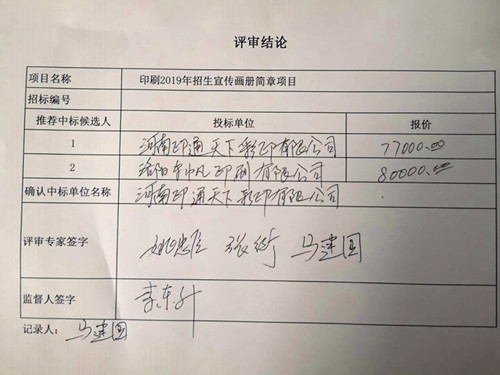 评审结论
项目名称 印刷2019年招生宣传画册简章项目
招标编号
推荐中标候选人 投标单位 报价
1 河南印通天下彩印有限公司 77000.00
2 洛阳市中凡印刷有限公司 80000.00
确认中标单位名称 河南印通天下彩印有限公司
评审专家签字 张衡 马建国
监督人签字 李东升
记录人: 马建国